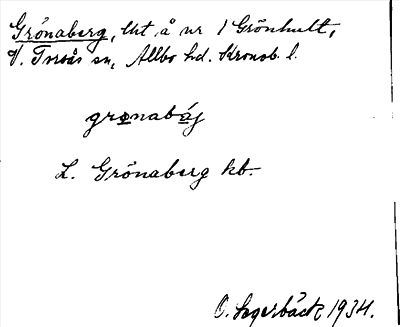 Grönaberg, lht. å nr 1 Grönhult,
V. Torsås sn, Allbo hd. Kronob. l.
grønabáj
L. Grönaberg kb.
O. Segerbäck 1934.